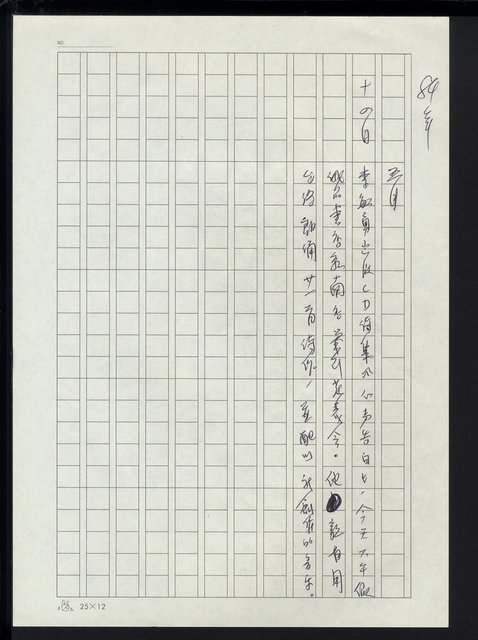 NO.
84年
五月
十四日
李敏勇出版CD詩集《心声告白》,今天下午假
誠品書店敦南店舉行發表会。他 親自用
台語朗誦廿一首詩作,並配以新創作的音乐。
25×12